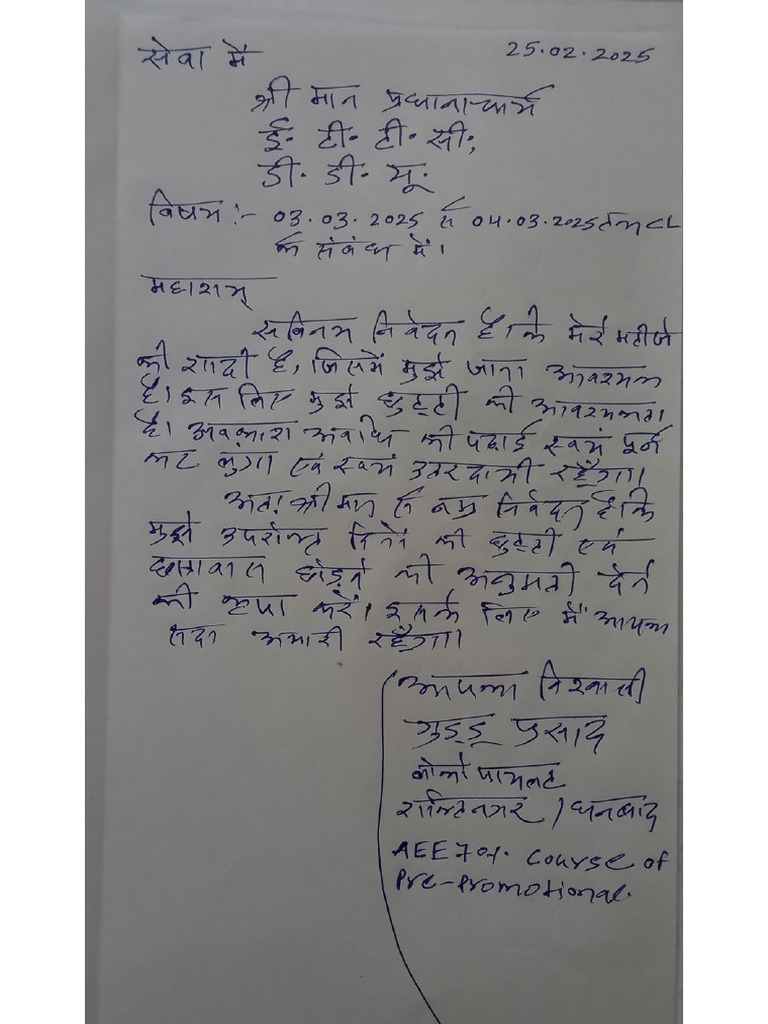 सेवा में
25.02.2025
श्री मान प्रधानाचार्य
ई. टी. टी. सी.,
डी. डी. यू.
विषय :- 03.03.2025 से 04.03.2025 तक CL
के संबंध में।
महाशय
सविनय निवेदन है कि मेरे भतीजे
की शादी है, जिसमें मुझे जाना आवश्यक
है। इस लिए मुझे छुट्टी की आवश्यकता
है। अवकाश अवधि की पढाई स्वयं पूर्ण
कर लुंगा एवं स्वयं उतरदायी रहूँगा।
अतः श्रीमान से नम्र निवेदन है कि
मुझे उपरोक्त दिनों की छुट्टी एवं
छात्रावास छोड़ने की अनुमती देने
की कृपा करें। इसके लिए मैं आपका
सदा अभारी रहूँगा।
आपका विश्वासी
गुड्डू प्रसाद
लोको पायलट
शक्तिनगर / धनबाद
AEE701. Course of
Pre-Promotional.